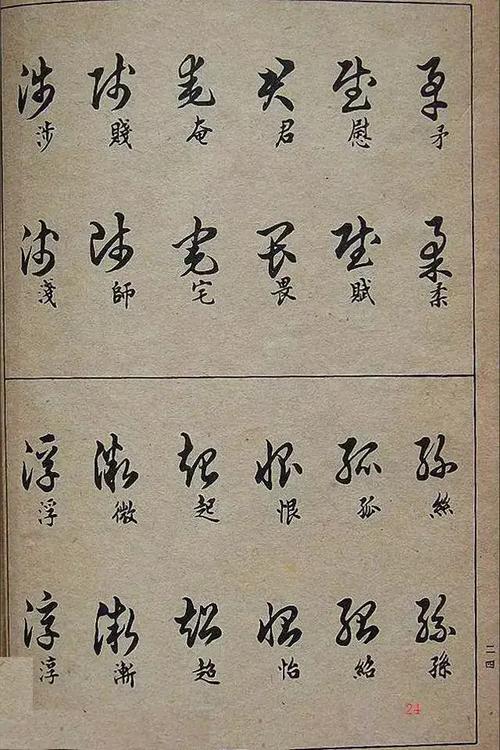 矛矛柔柔
慰慰賦賦
君君畏畏
庵庵宅宅
賤賤師師
涉涉淺淺
絲絲孫孫
孤孤紹紹
恨恨怡怡
起起超超
微微漸漸
浮浮淳淳
二四
24